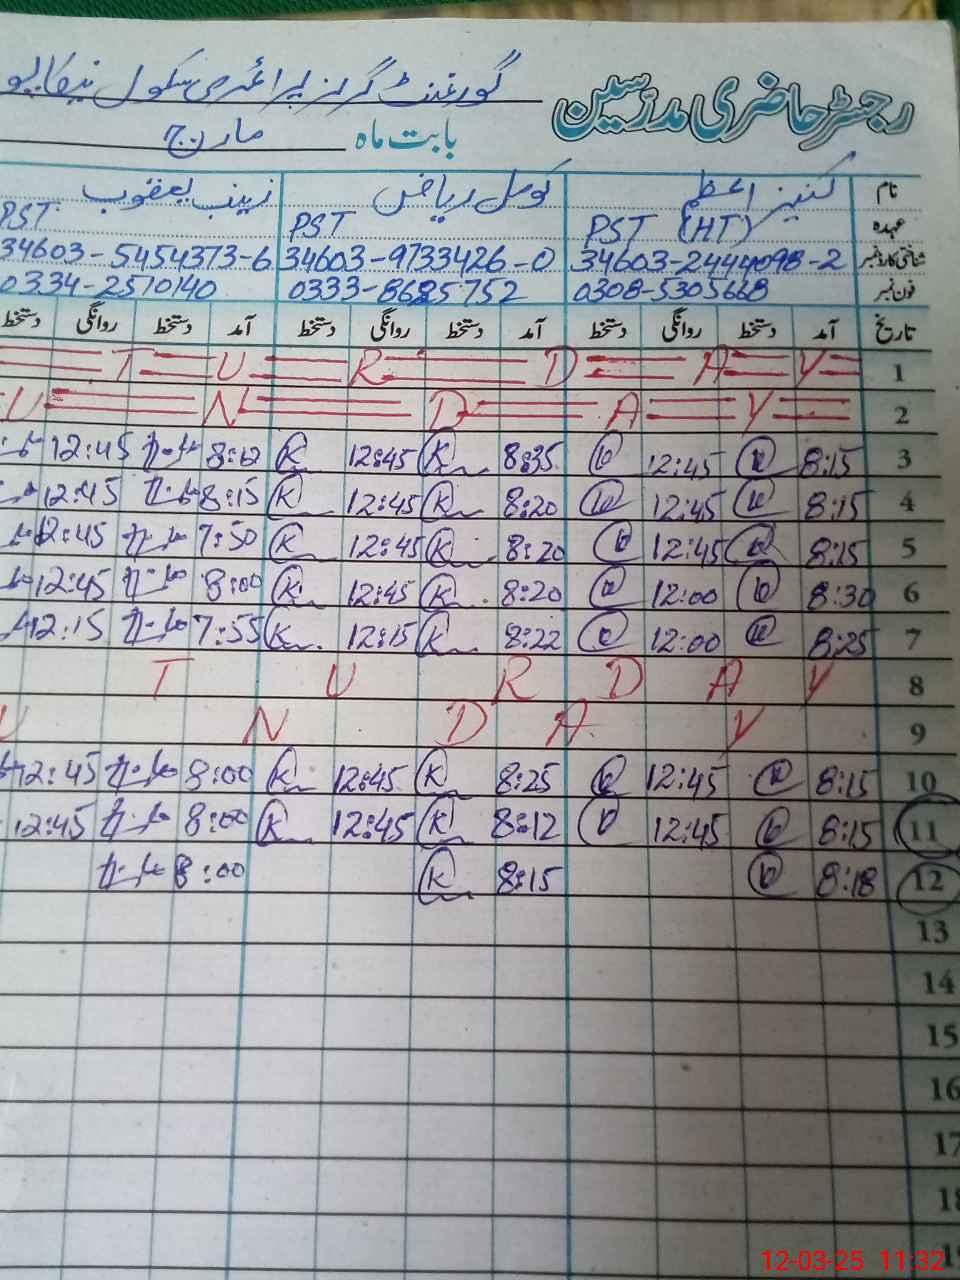 رجسٹر حاضری مدرسین گورنمنٹ گرلز پرائمری سکول
بابت ماہ مارچ
نام کنیز اعظم کومل ریاض زینب یعقوب
عہدہ PST (HT) PST PST
شناختی کارڈ نمبر 34603-9733426-0 34603-5454373-6
فون نمبر 0308-5305668 0334-2510140
تاریخ آمد دستخط روانگی دستخط آمد دستخط روانگی دستخط آمد دستخط روانگی دستخط
1 T U R D A Y
2 U N D A Y
3 8:15 12:45 8:35 K 12:45 K 8:12 12:45
4 8:15 12:45 8:20 K 12:45 K 8:15 12:45
5 8:15 12:45 8:20 K 12:45 K 7:50 12:45
6 8:30 12:00 8:20 K 12:45 K 8:00 12:45
7 8:25 12:00 8:22 K 12:15 K 7:55 12:15
8 T U R D A Y
9 U N D A Y
10 8:15 12:45 8:25 K 12:45 K 8:00 12:45
11 8:15 12:45 8:12 K 12:45 K 8:00 12:45
12 8:18 8:15 K 8:00
13
14
15
16
17
18
12-03-25 11:32